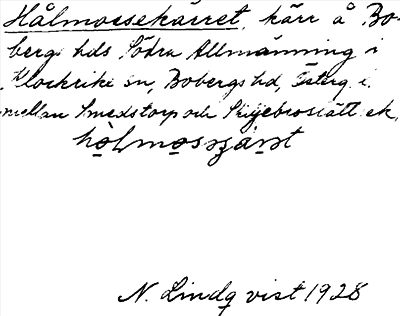 Hålmossekärret, kärr å Bo-
bergs hds Södra Allmänning i
Klockrike sn, Bobergs hd, Österg. l.
mellan Smedstorp och Skijebroslätt ek.
N. Lindqvist 1928